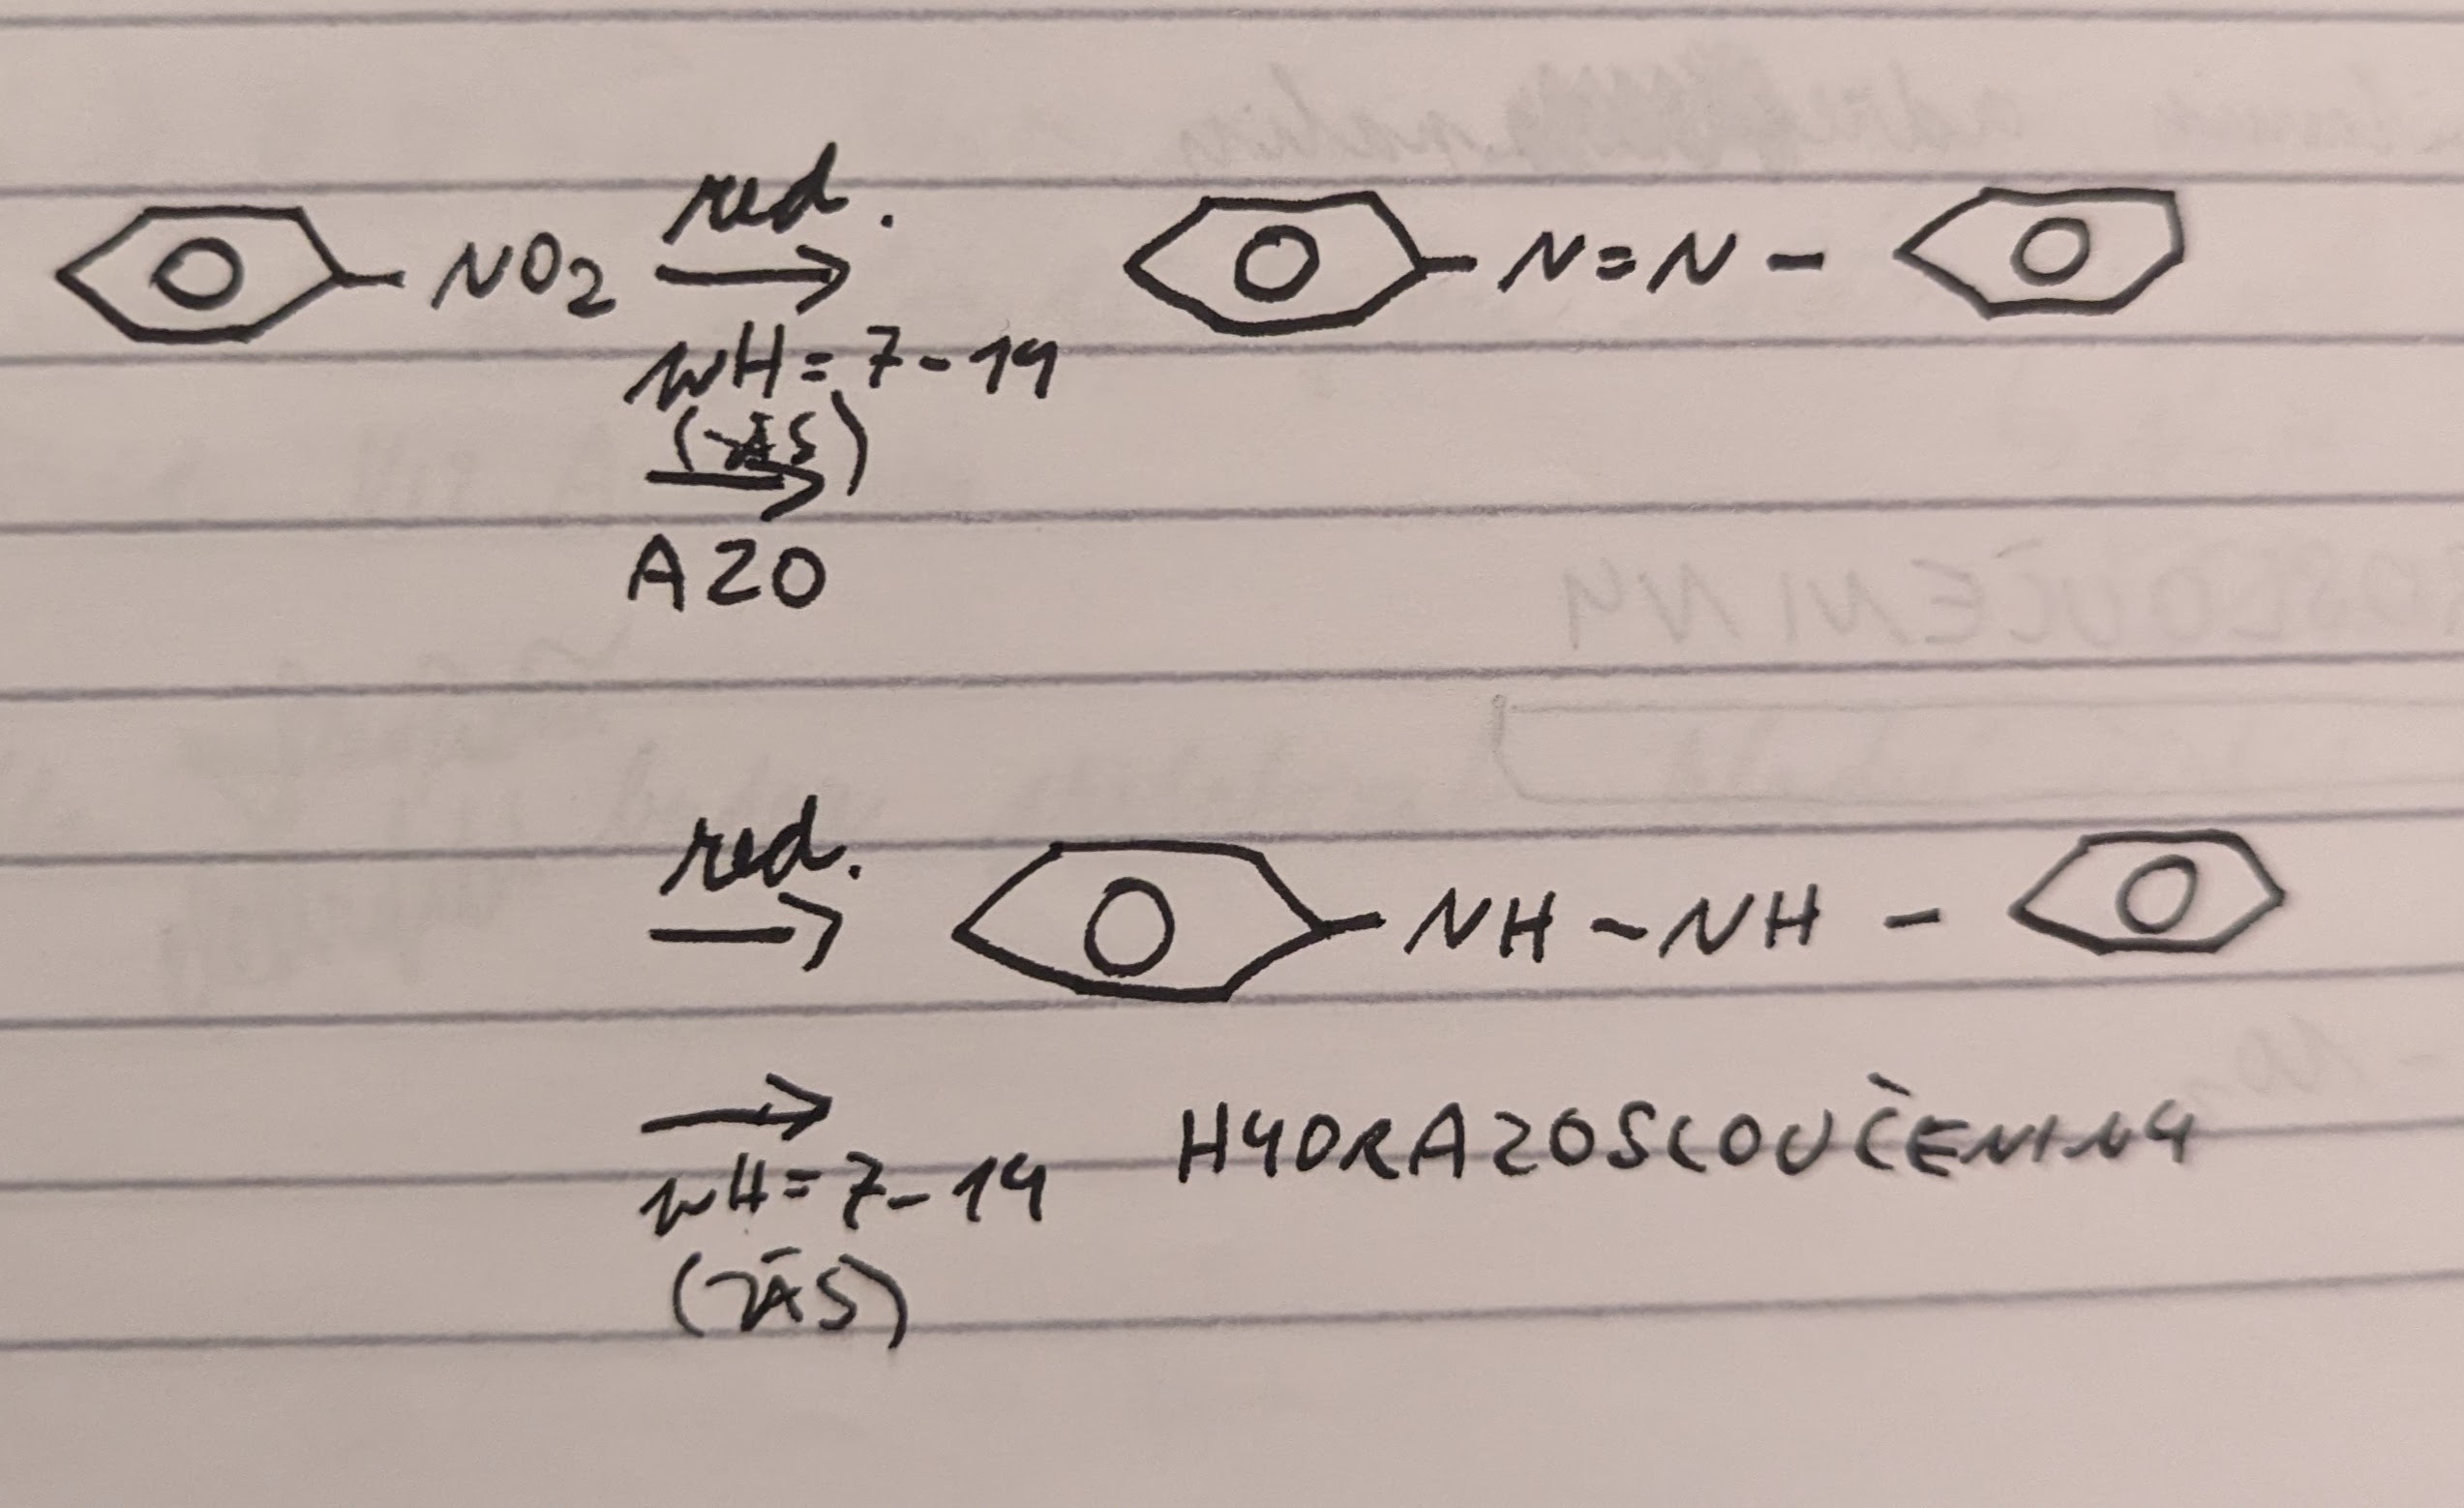 NO2 red. → N=N-
pH = 7-14
(ZÁS)
→
AZO
red. → NH-NH-
→ HYDRAZOSLOUČENINY
pH = 7-14
(ZÁS)